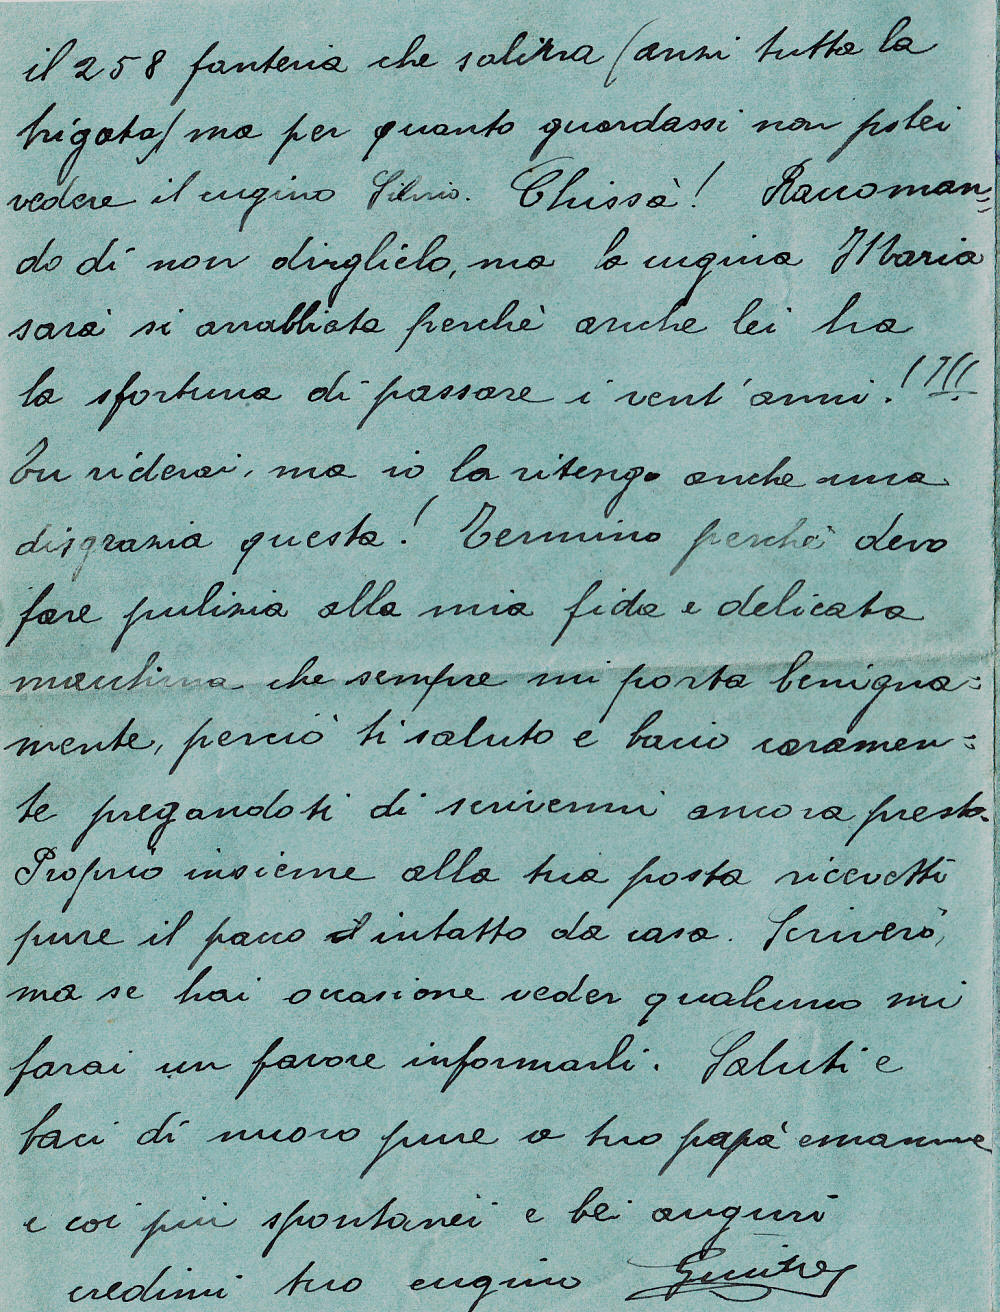 il 258 fanteria che saliva (anzi tutta la
brigata) ma per quanto guardassi non potei
vedere il cugino Silvio. Chissà! Raccoman=
do di non dirglielo, ma la cugina Maria
sarà si arrabbiata perchè anche lei ha
la sfortuna di passare i vent'anni!!!!
Tu riderai, ma io la ritengo anche una
disgrazia questa! Termino perchè devo
fare pulizia alla mia fida e delicata
macchina che sempre mi porta benigna=
mente, perciò ti saluto e bacio caramen=
te pregandoti di scrivermi ancora presto.
Proprio insieme alla tua posta ricevetti
pure il pacco intatto da casa. Scriverò,
ma se hai occasione veder qualcuno mi
farai un favore informarli. Saluti e
baci di nuovo pure a tuo papà e mamme
e coi più spontanei e bei auguri
credimi tuo cugino